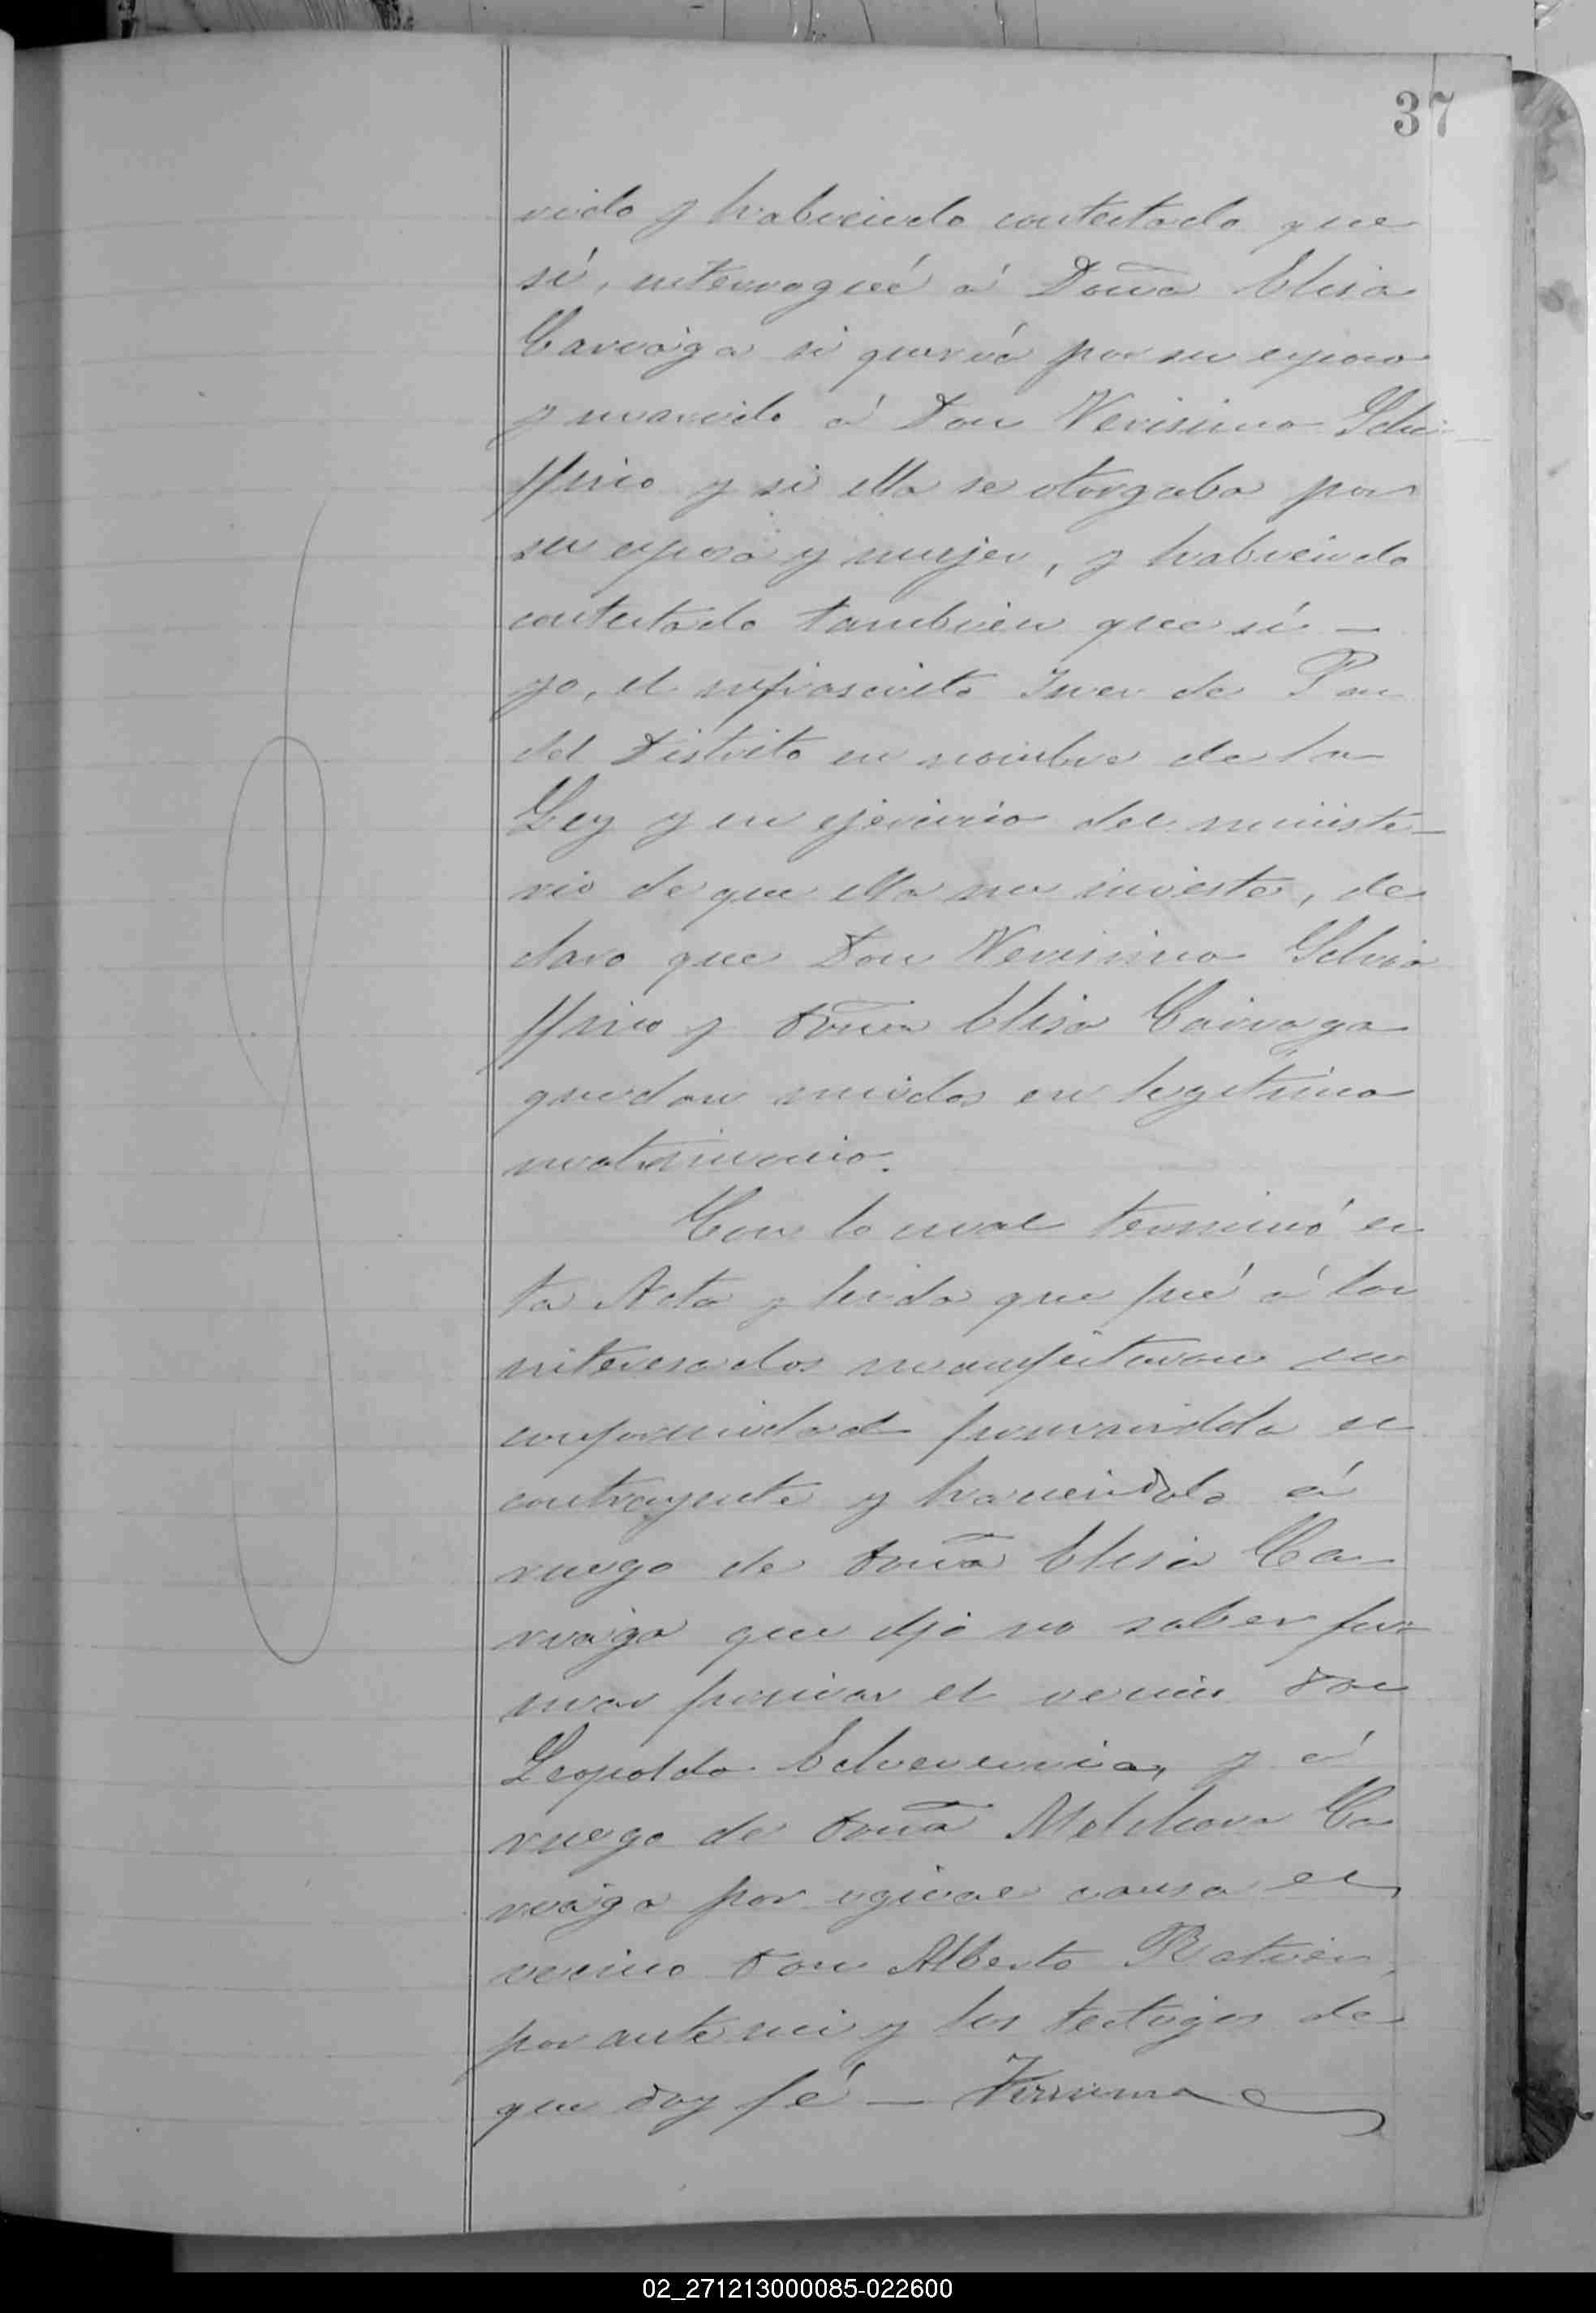 37
rido y habiendo contestado que
sí, interrogué á Doña Elisa
Carriága si quería por su esposo
y marido á Don Verisimo Schia
ffino y si ella se otorgaba por
su esposa y mujer, y habiendo
contestado tambien que sí —
yo, el infrascrito Juez de Paz
del Distrito en nombre de la
Ley y en ejercicio del ministe-
rio de que ella me inviste, de
claro que Don Verisimo Schia
ffino y Doña Elisa Carriaga
quedan unidos en legítimo
matrimonio.
Con lo cual terminó es
ta Acta y leida que fué á los
interesados manifestaron su
conformidad firmandola el
contrayente y haciendolo á
ruego de Doña Elisa Ca
rriága que dijo no saber fir-
mar firmar el vecino Don
Leopoldo Echeverria, y á
ruego de Doña Melchora Ca
rriága por igual causa el
vecino Don Alberto
por ante mi y los testigos de
que doy fé —
02_271213000085-022600